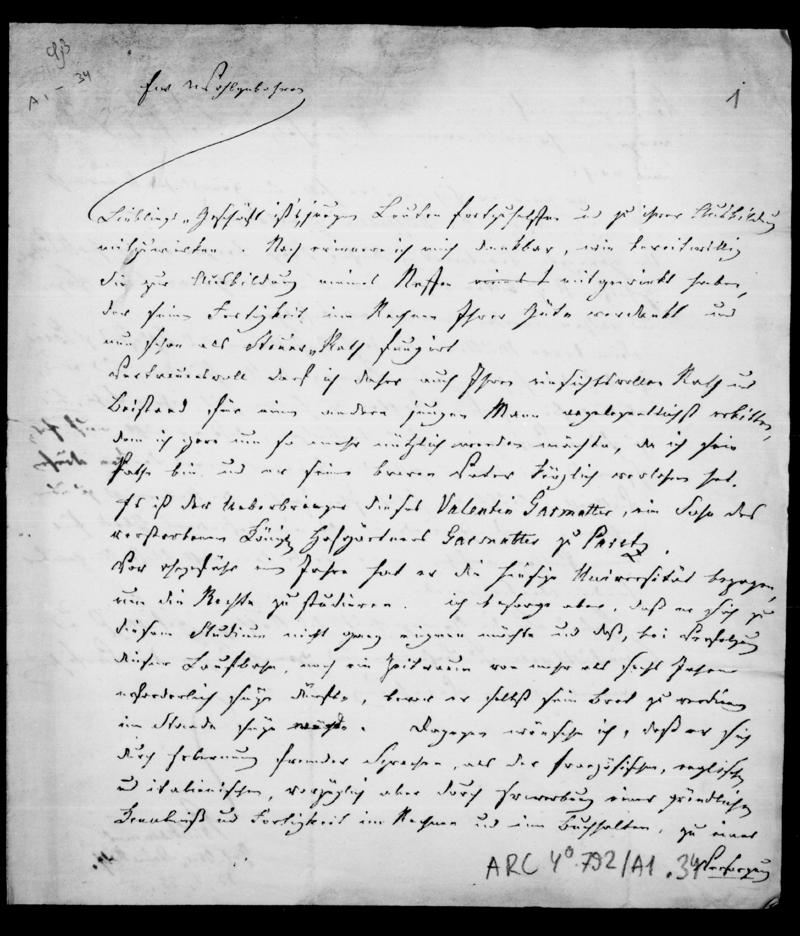 A1 - 34
1
Ew Wohlgebohren
Lieblings-Geschäft ist's jungen Leuten fortzuhelfen und zu ihrer Ausbildung
mitzuwirken. Noch erinnere ich mich dankbar, wie bereitwillig
Sie zur Ausbildung meines Neffen mitgewirkt haben,
der seine Fertigkeit im Rechnen Ihrer Güte verdankt und
nun schon als Steuer-Rath fungirt
Vertrauensvoll darf ich daher auch Ihren einsichtsvollen Rath und
Beistand für einen andern jungen Mann angelegentlichst erbitten,
dem ich gern um so mehr nützlich werden möchte, da ich sein
Pathe bin und er seinen braven Vater kürzlich verlohren hat.
Es ist der Ueberbringer dieses Valentin Garmatter, ein Sohn des
verstorbenen Königl Hofgärtners Garmatter zu Paretz.
Vor ohngefähr einem Jahre hat er die hiesige Universität bezogen,
um die Rechte zu studieren. ich besorge aber, daß er sich zu
diesem Studium nicht ganz eignen möchte und daß, bei Verfolgung
dieser Laufbahn, noch ein Zeitraum von mehr als sechs Jahren
erforderlich seyn dürfte, bevor er selbst sein Brod zu verdienen
im Stande seyn möchte. Dagegen wünsche ich, daß er sich
durch Erlernung fremder Sprachen, als der französischen, englischen
und italienischen, vorzüglich aber durch Erwerbung einer gründlichen
Kenntniß und Fertigkeit im Rechnen und im Buchhalten, zu einer
Versorgung
ARC 4° 792/A1 .34